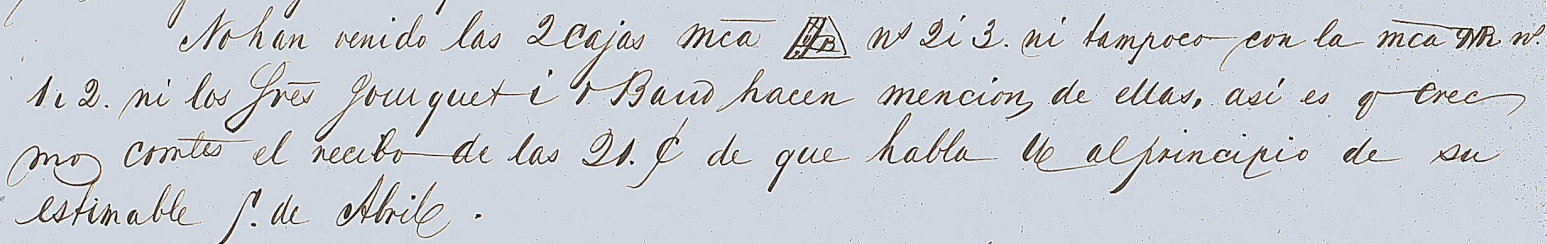 No han venido las 2 cajas mca nos 2 i 3. ni tampoco con la mca no.
1 i 2. ni los Sres Jouquet i Baud hacen mencion de ellas, así es q cree
mos corrtes el recibo de las 21. ₵ de que habla U al principio de su
estimable f. de Abril.